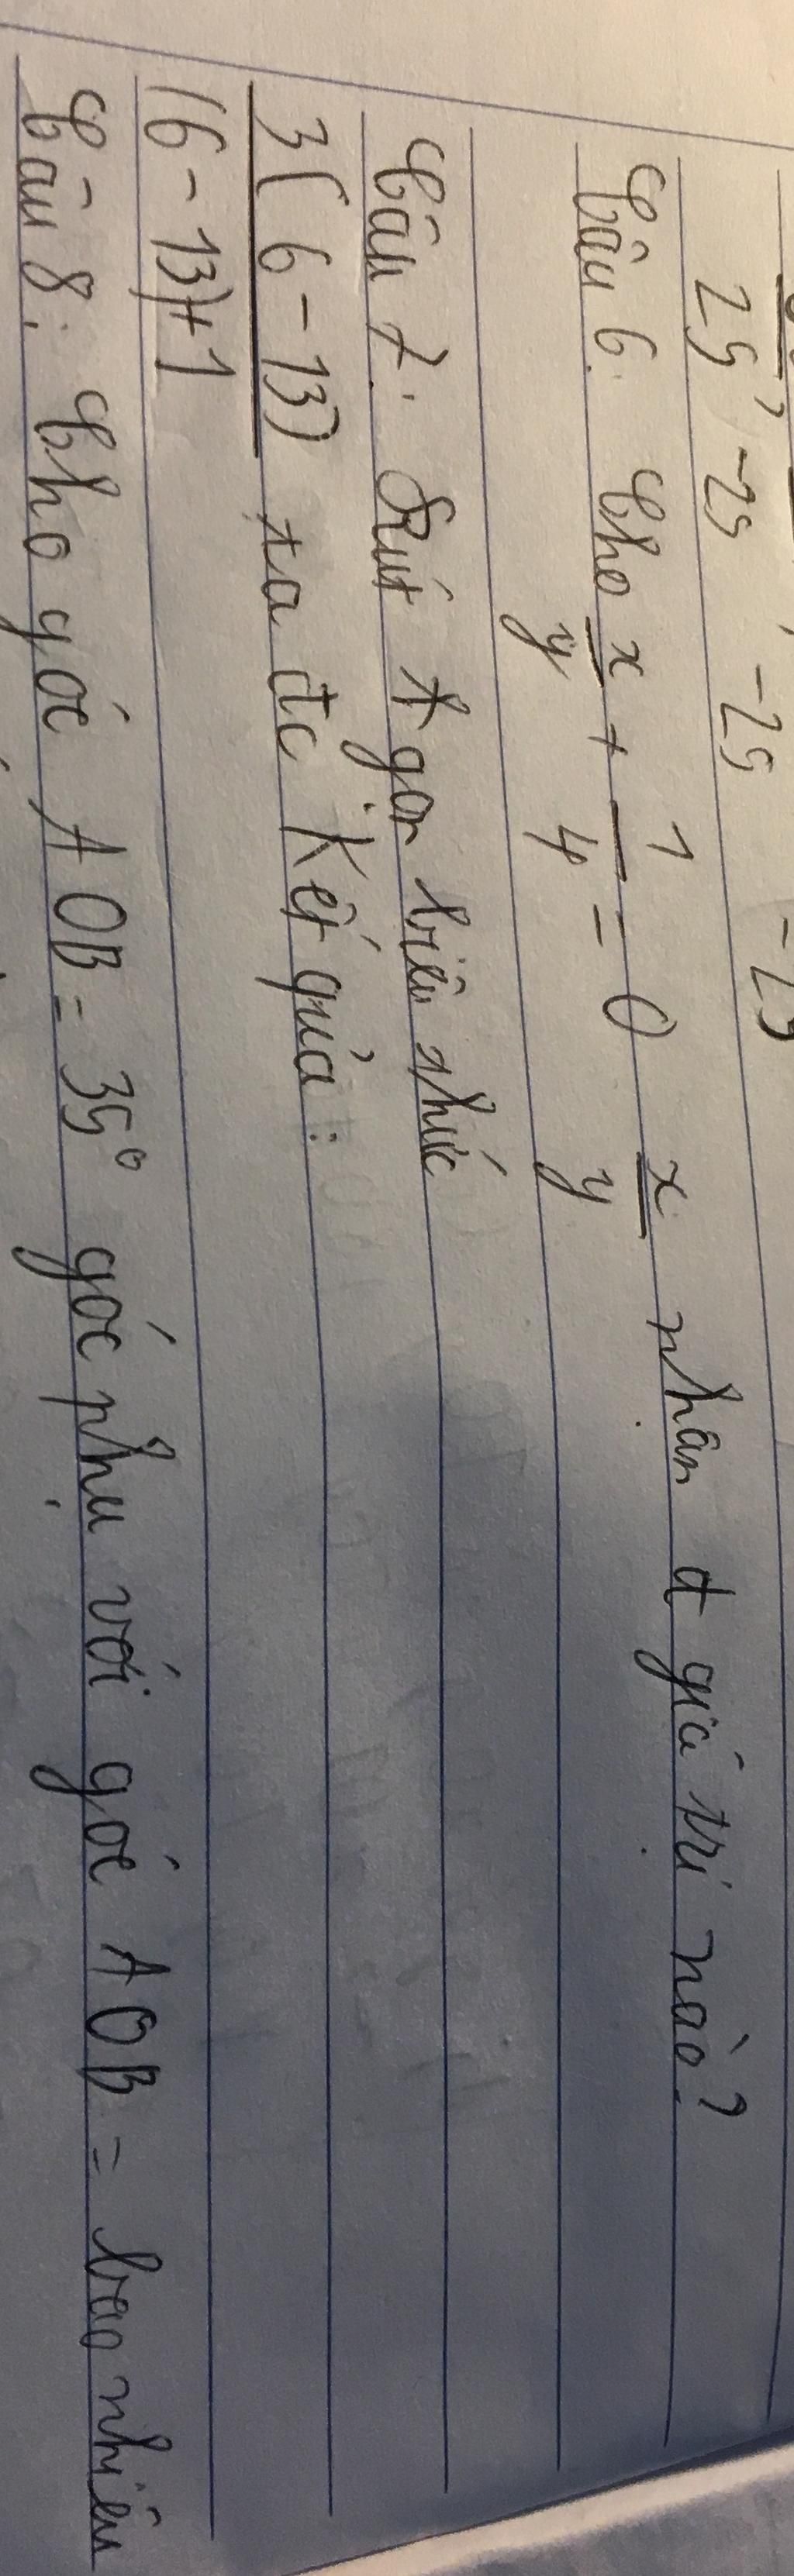 25, -25 -25 -25
Câu 6. Cho x/y + 1/4 = 0 x/y nhận đ giá trị nào?
Câu 7. Rút t gọn biểu thức
3(6-13) ta đc kết quả:
(6-13)+1
Câu 8: Cho góc AOB = 35° góc phụ với góc AOB = bao nhiêu